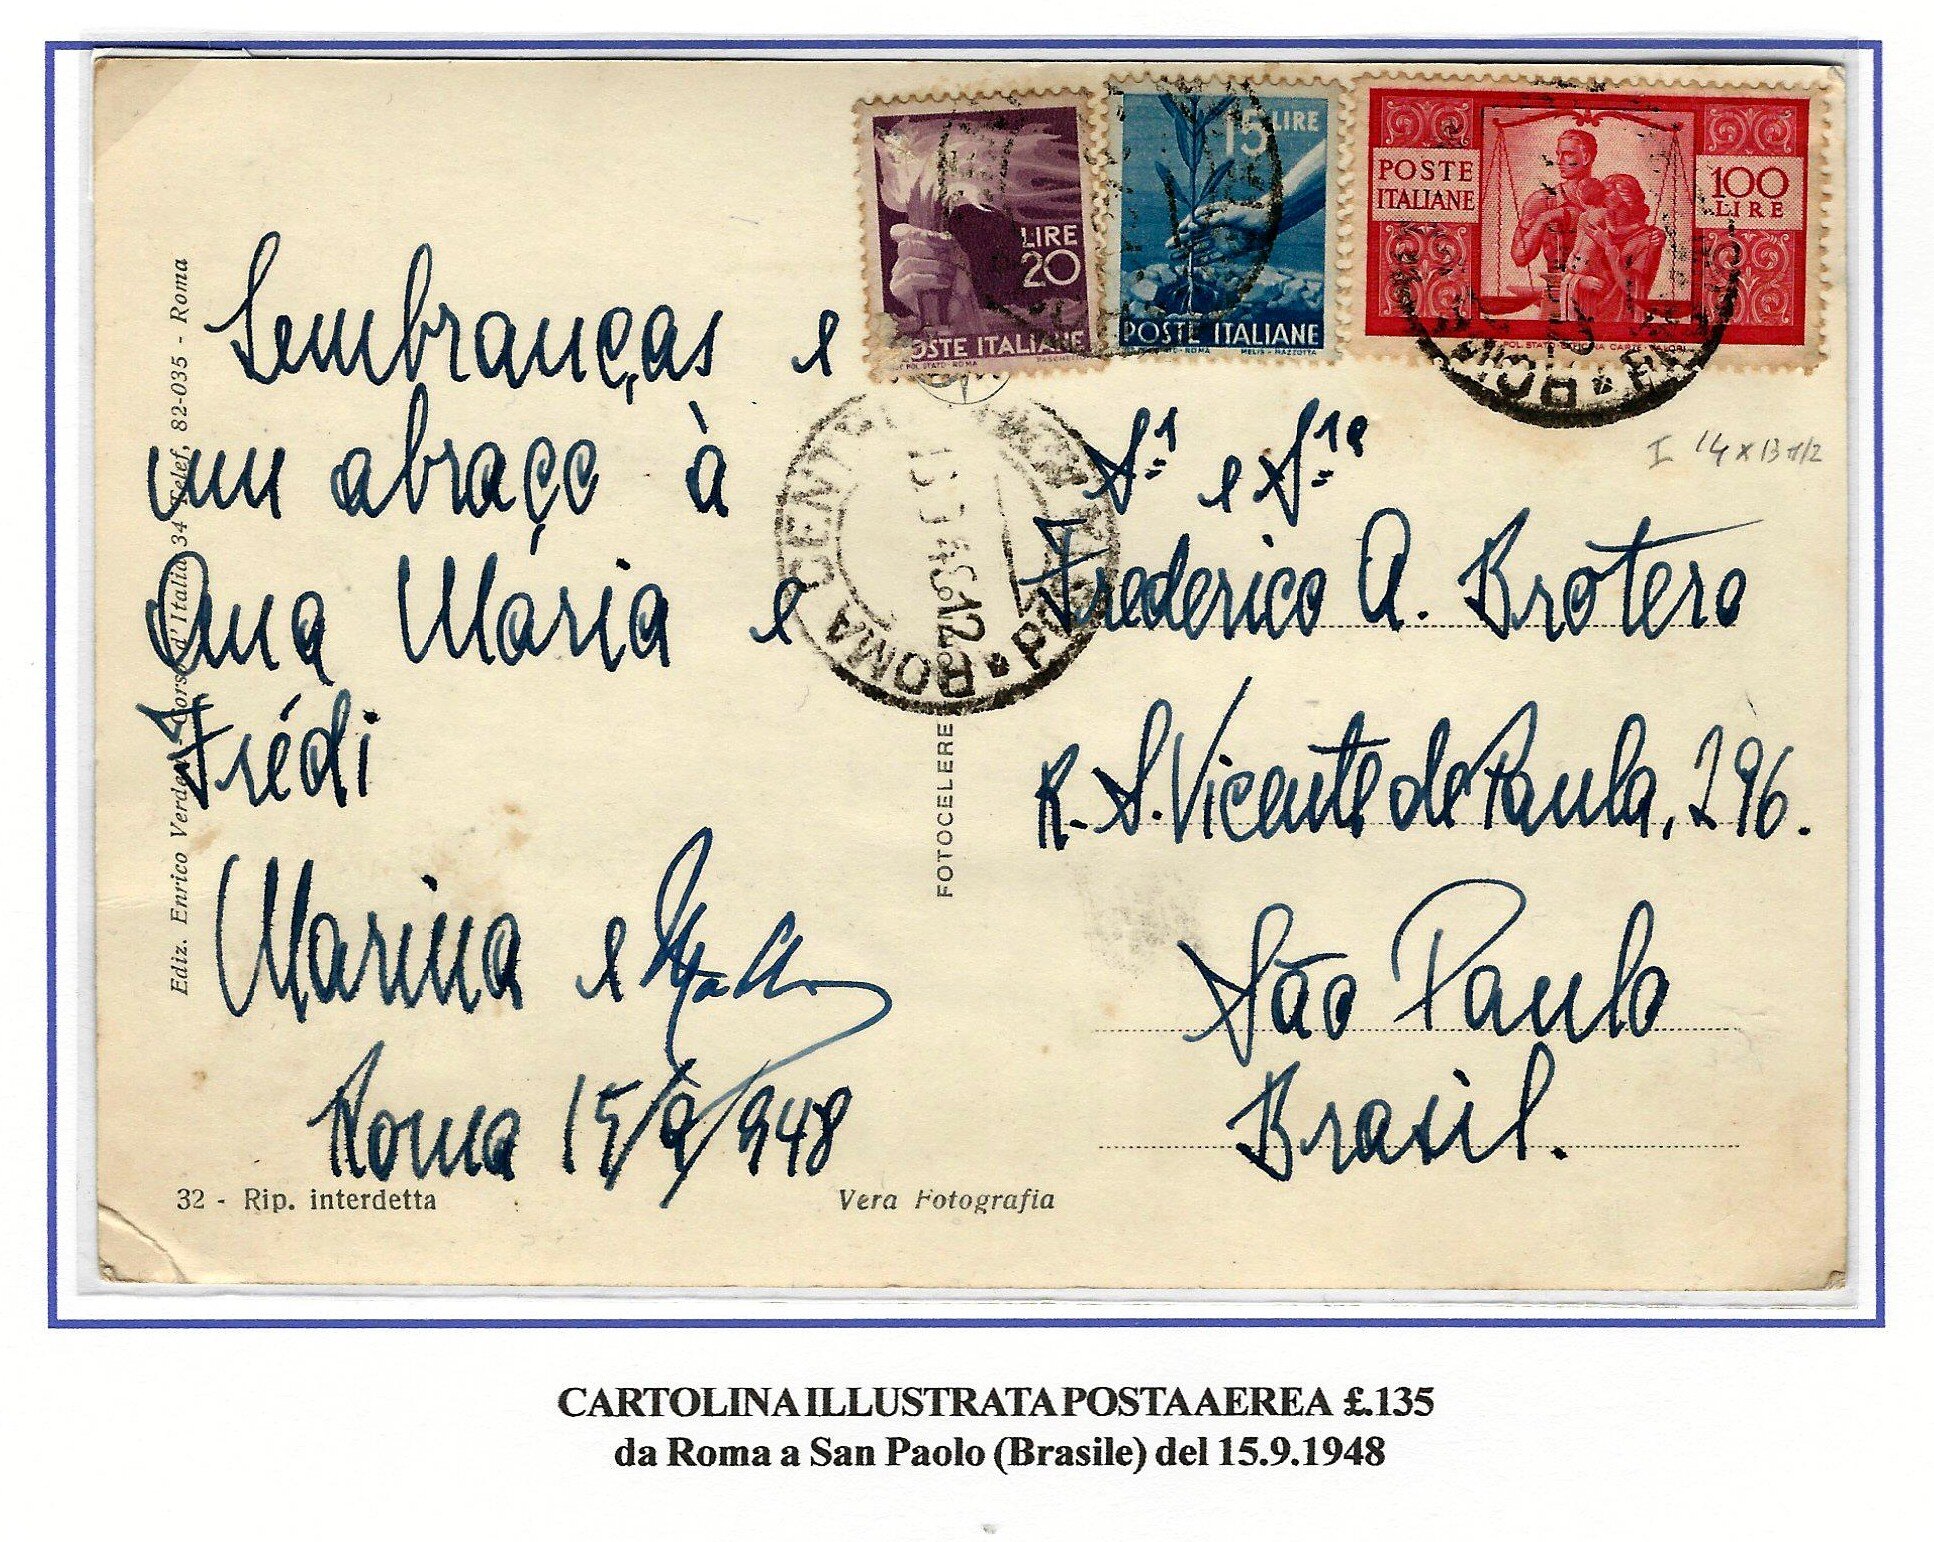 LIRE
20
POSTE ITALIANE
15 LIRE
POSTE ITALIANE
POSTE
ITALIANE
100
LIRE
I 14 x 13 1/2
Lembranças e
um abraço à
Ana Maria e
Frédi
Marina e
Roma 15/9/948
ROMA CENTRO
15.9.48 12
Sr e Sra
Frederico A. Brotero
R. S. Vicente de Paula, 296.
São Paulo
Brasil.
Ediz. Enrico Verdesi - Corso d'Italia 34 Telef. 82-035 - Roma
FOTOCELERE
32 - Rip. interdetta
Vera Fotografia
CARTOLINA ILLUSTRATA POSTA AEREA £.135
da Roma a San Paolo (Brasile) del 15.9.1948